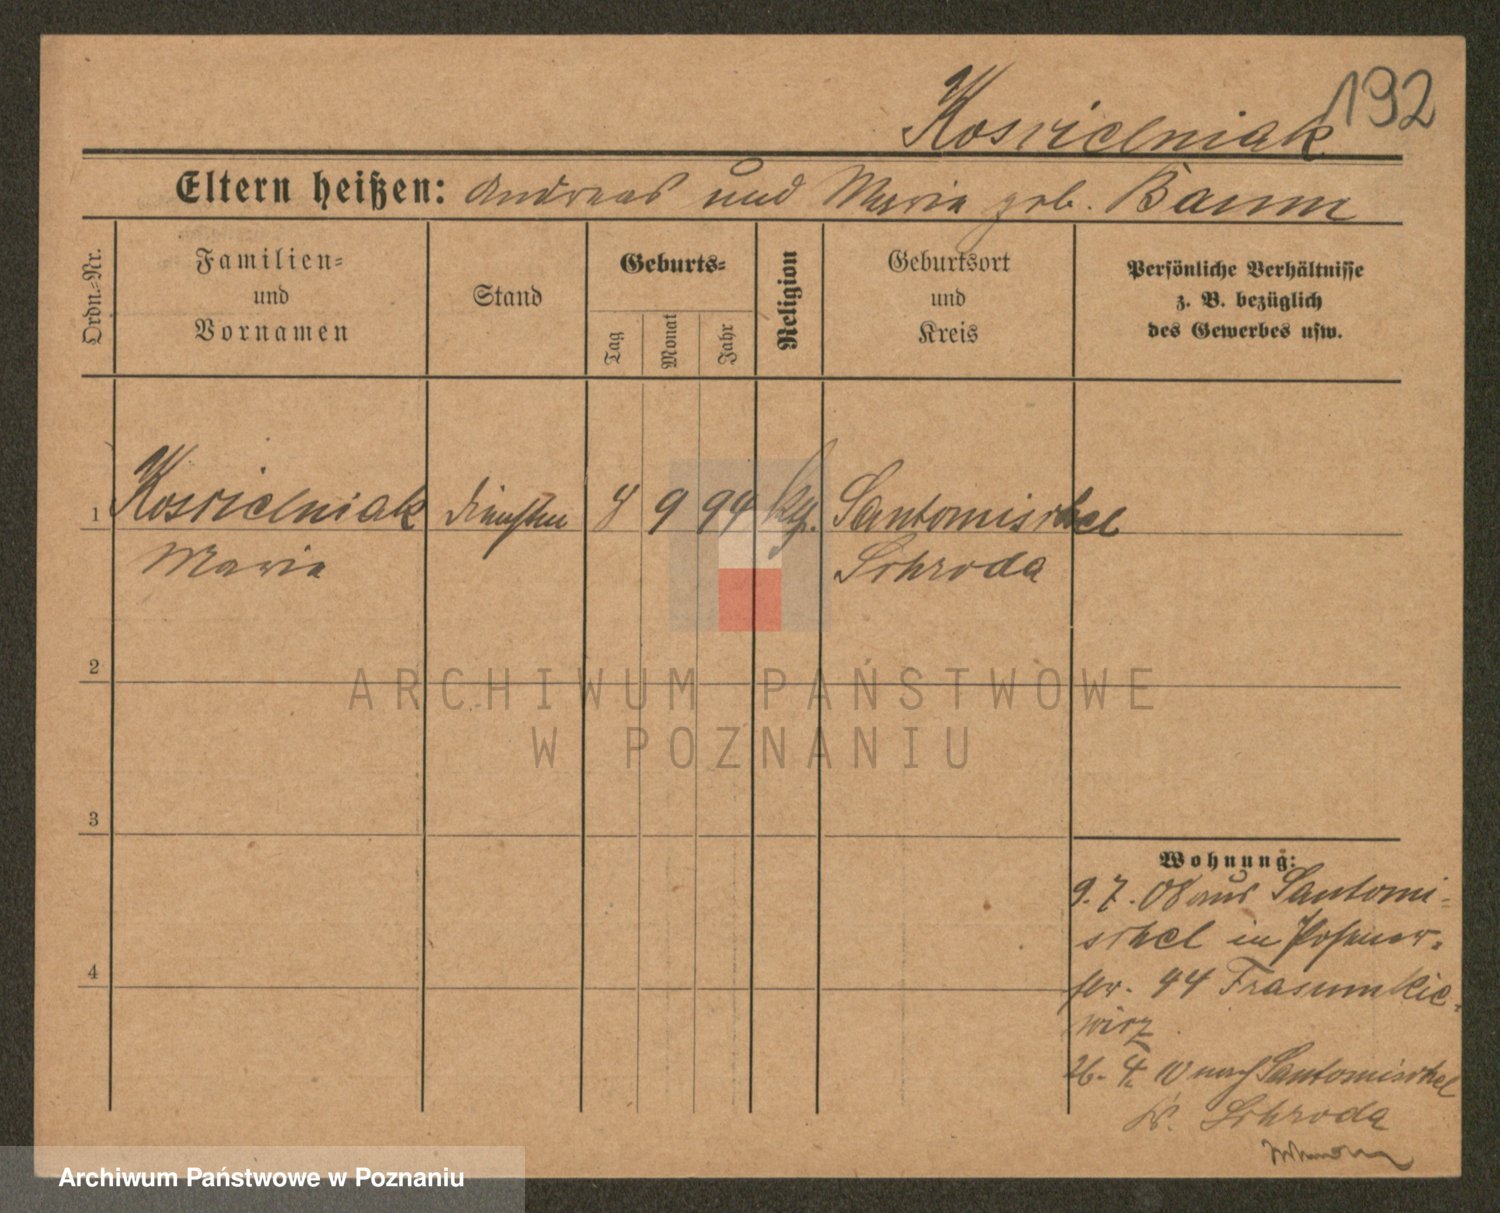 192
Koscielniak
Eltern heißen: Andreas und Maria geb. Baum
Ordn.-Nr.
Familien-
und
Vornamen
Stand
Geburts-
Tag
Monat
Jahr
Religion
Geburtsort
und
Kreis
Persönliche Verhältnisse
z. B. bezüglich
des Gewerbes usw.
1 Koscielniak 8 9 94 Santomischel
Maria Schroda
2
3
4
Wohnung:
9. 7. 08 aus Santomi-
schel in
44
26. 4. 10 nach Santomischel
Kr. Schroda
ARCHIWUM PAŃSTWOWE
W POZNANIU
Archiwum Państwowe w Poznaniu